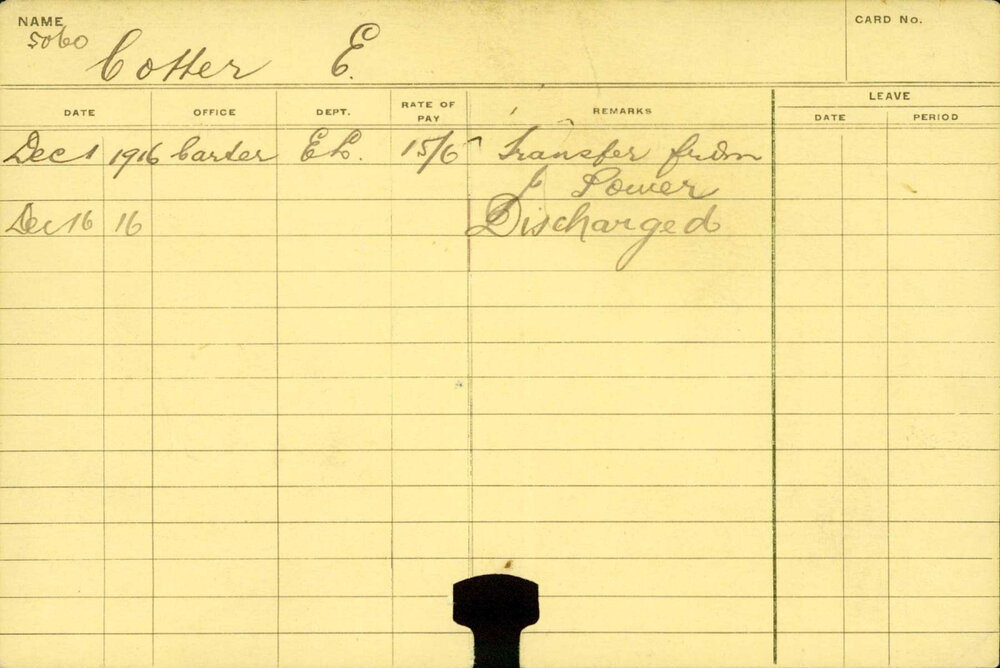 NAME
5060
Cotter E.
CARD No.
DATE OFFICE DEPT. RATE OF PAY REMARKS LEAVE
DATE PERIOD
Dec 1 1916 Carter EL. 15/6 Transfer from
J Power
Dec 16 16 Discharged